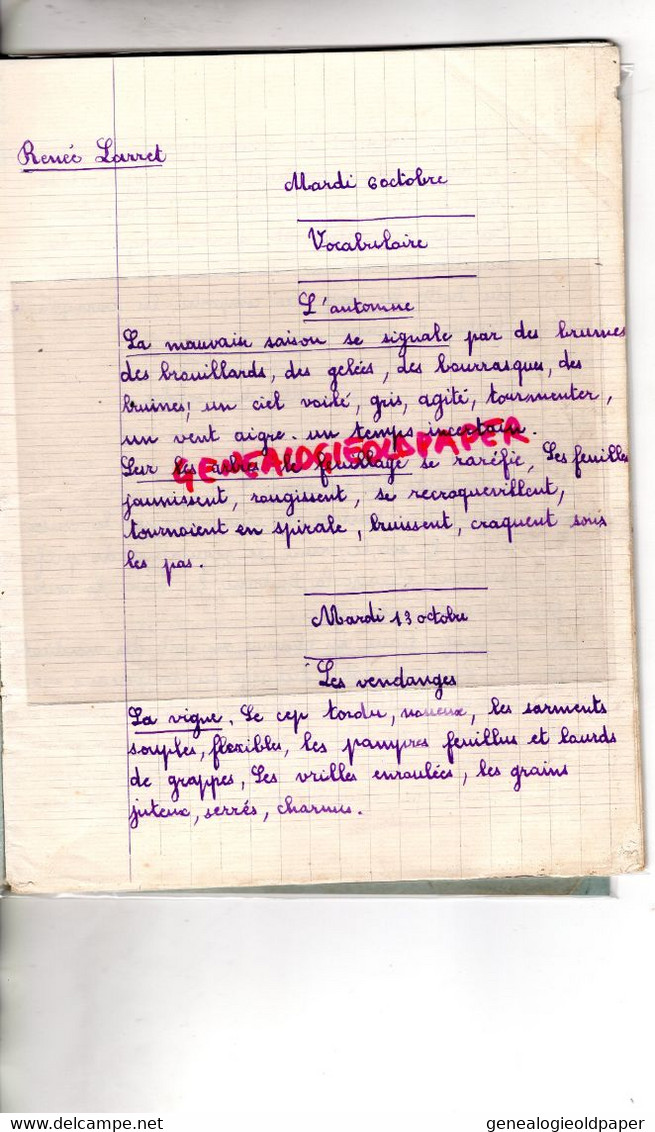 Renée Larret
Mardi 6 octobre
Vocabulaire
L'automne
La mauvais saison se signale par des brumes
des brouillards, des gelées, des bourrasques, des
bruines; un ciel voilé, gris, agité, tourmenter,
un vent aigre. un temps incertain.
GENEALOGIEOLDPAPER
Sur les arbres le feuillage se raréfie, Les feuilles
jaunissent, rougissent, se recroquevillent,
tournoient en spirale, bruissent, craquent sous
les pas.
Mardi 13 octobre
Les vendanges
La vigne. Le cep tordu, noueux, les sarments
souples, flexibles, les pampres feuillus et lourds
de grappes, Les vrilles enroulées, les grains
juteux, serrés, charnus.
genealogieoldpaper